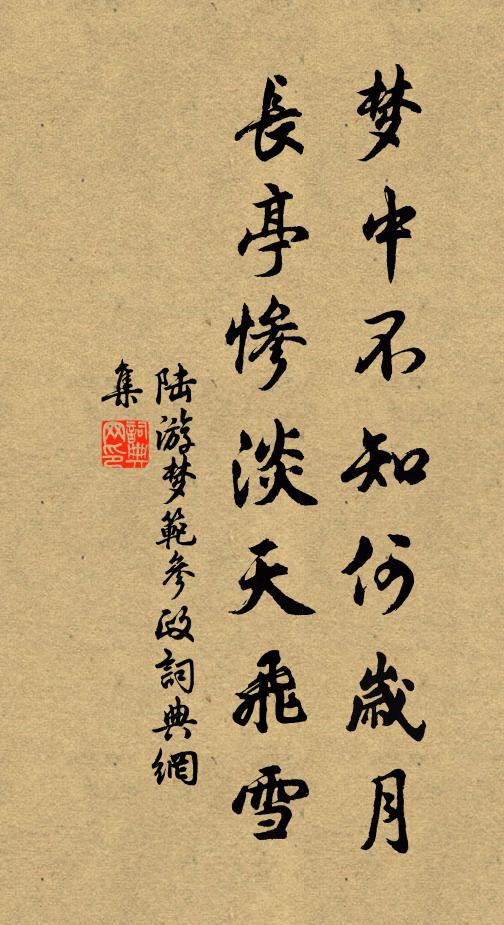 梦中不知何歲月
長亭慘淡天飛雪
陆游梦範參政詞典網
集
詞典
网印